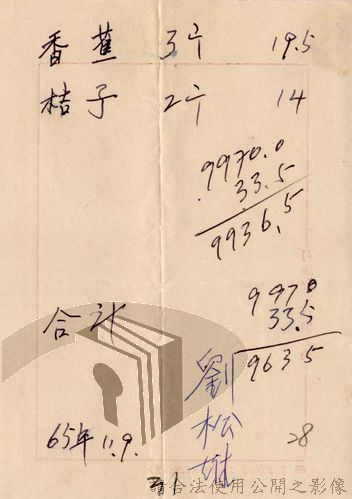 香蕉 3斤 19.5
桔子 2斤 14
9970.0
33.5
9936.5
合计
9970
33.5
9635
劉松
65年11.9.
28
合法使用公開之影像